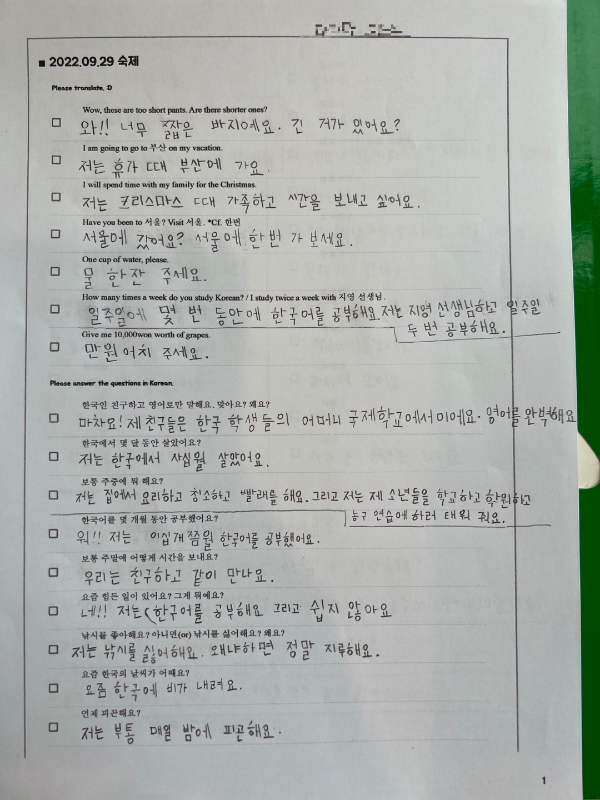 ■ 2022.09.29 숙제
Please translate. :D
Wow, these are too short pants. Are there shorter ones?
와!! 너무 짧은 바지예요. 긴 거가 있어요?
I am going to go to 부산 on my vacation.
저는 휴가 때 부산에 가요.
I will spend time with my family for the Christmas.
저는 크리스마스 때 가족하고 시간을 보내고 싶어요.
Have you been to 서울? Visit 서울. *Cf. 한번
서울에 갔어요? 서울에 한번 가 보세요.
One cup of water, please.
물 한잔 주세요.
How many times a week do you study Korean? / I study twice a week with 지영 선생님.
일주일에 몇 번 동안에 한국어를 공부해요. 저는 지영 선생님하고 일주일
두 번 공부해요.
Give me 10,000won worth of grapes.
만원어치 주세요.
Please answer the questions in Korean.
한국인 친구하고 영어로만 말해요. 맞아요? 왜요?
마차요! 제 친구들은 한국 학생들의 어머니 국제학교에서이에요. 영어를 완벽해요
한국에서 몇 달 동안 살았어요?
저는 한국에서 사십월 살았어요.
보통 주중에 뭐 해요?
저는 집에서 요리하고 청소하고 빨래를 해요. 그리고 저는 제 소년들을 학교하고 학원하고
농구 연습에 하러 태워 줘요.
한국어를 몇 개월 동안 공부했어요?
워!! 저는 이십개쯤월 한국어를 공부했어요.
보통 주말에 어떻게 시간을 보내요?
우리는 친구하고 같이 만나요.
요즘 힘든 일이 있어요? 그게 뭐예요?
네!! 저는 (한국어를 공부해요 그리고 쉽지 않아요
낚시를 좋아해요? 아니면(or) 낚시를 싫어해요? 왜요?
저는 낚시를 싫어해요. 왜냐하면 정말 지루해요.
요즘 한국의 날씨가 어때요?
요즘 한국에 비가 내려요.
언제 피곤해요?
저는 부통 매일 밤에 피곤해요.
1